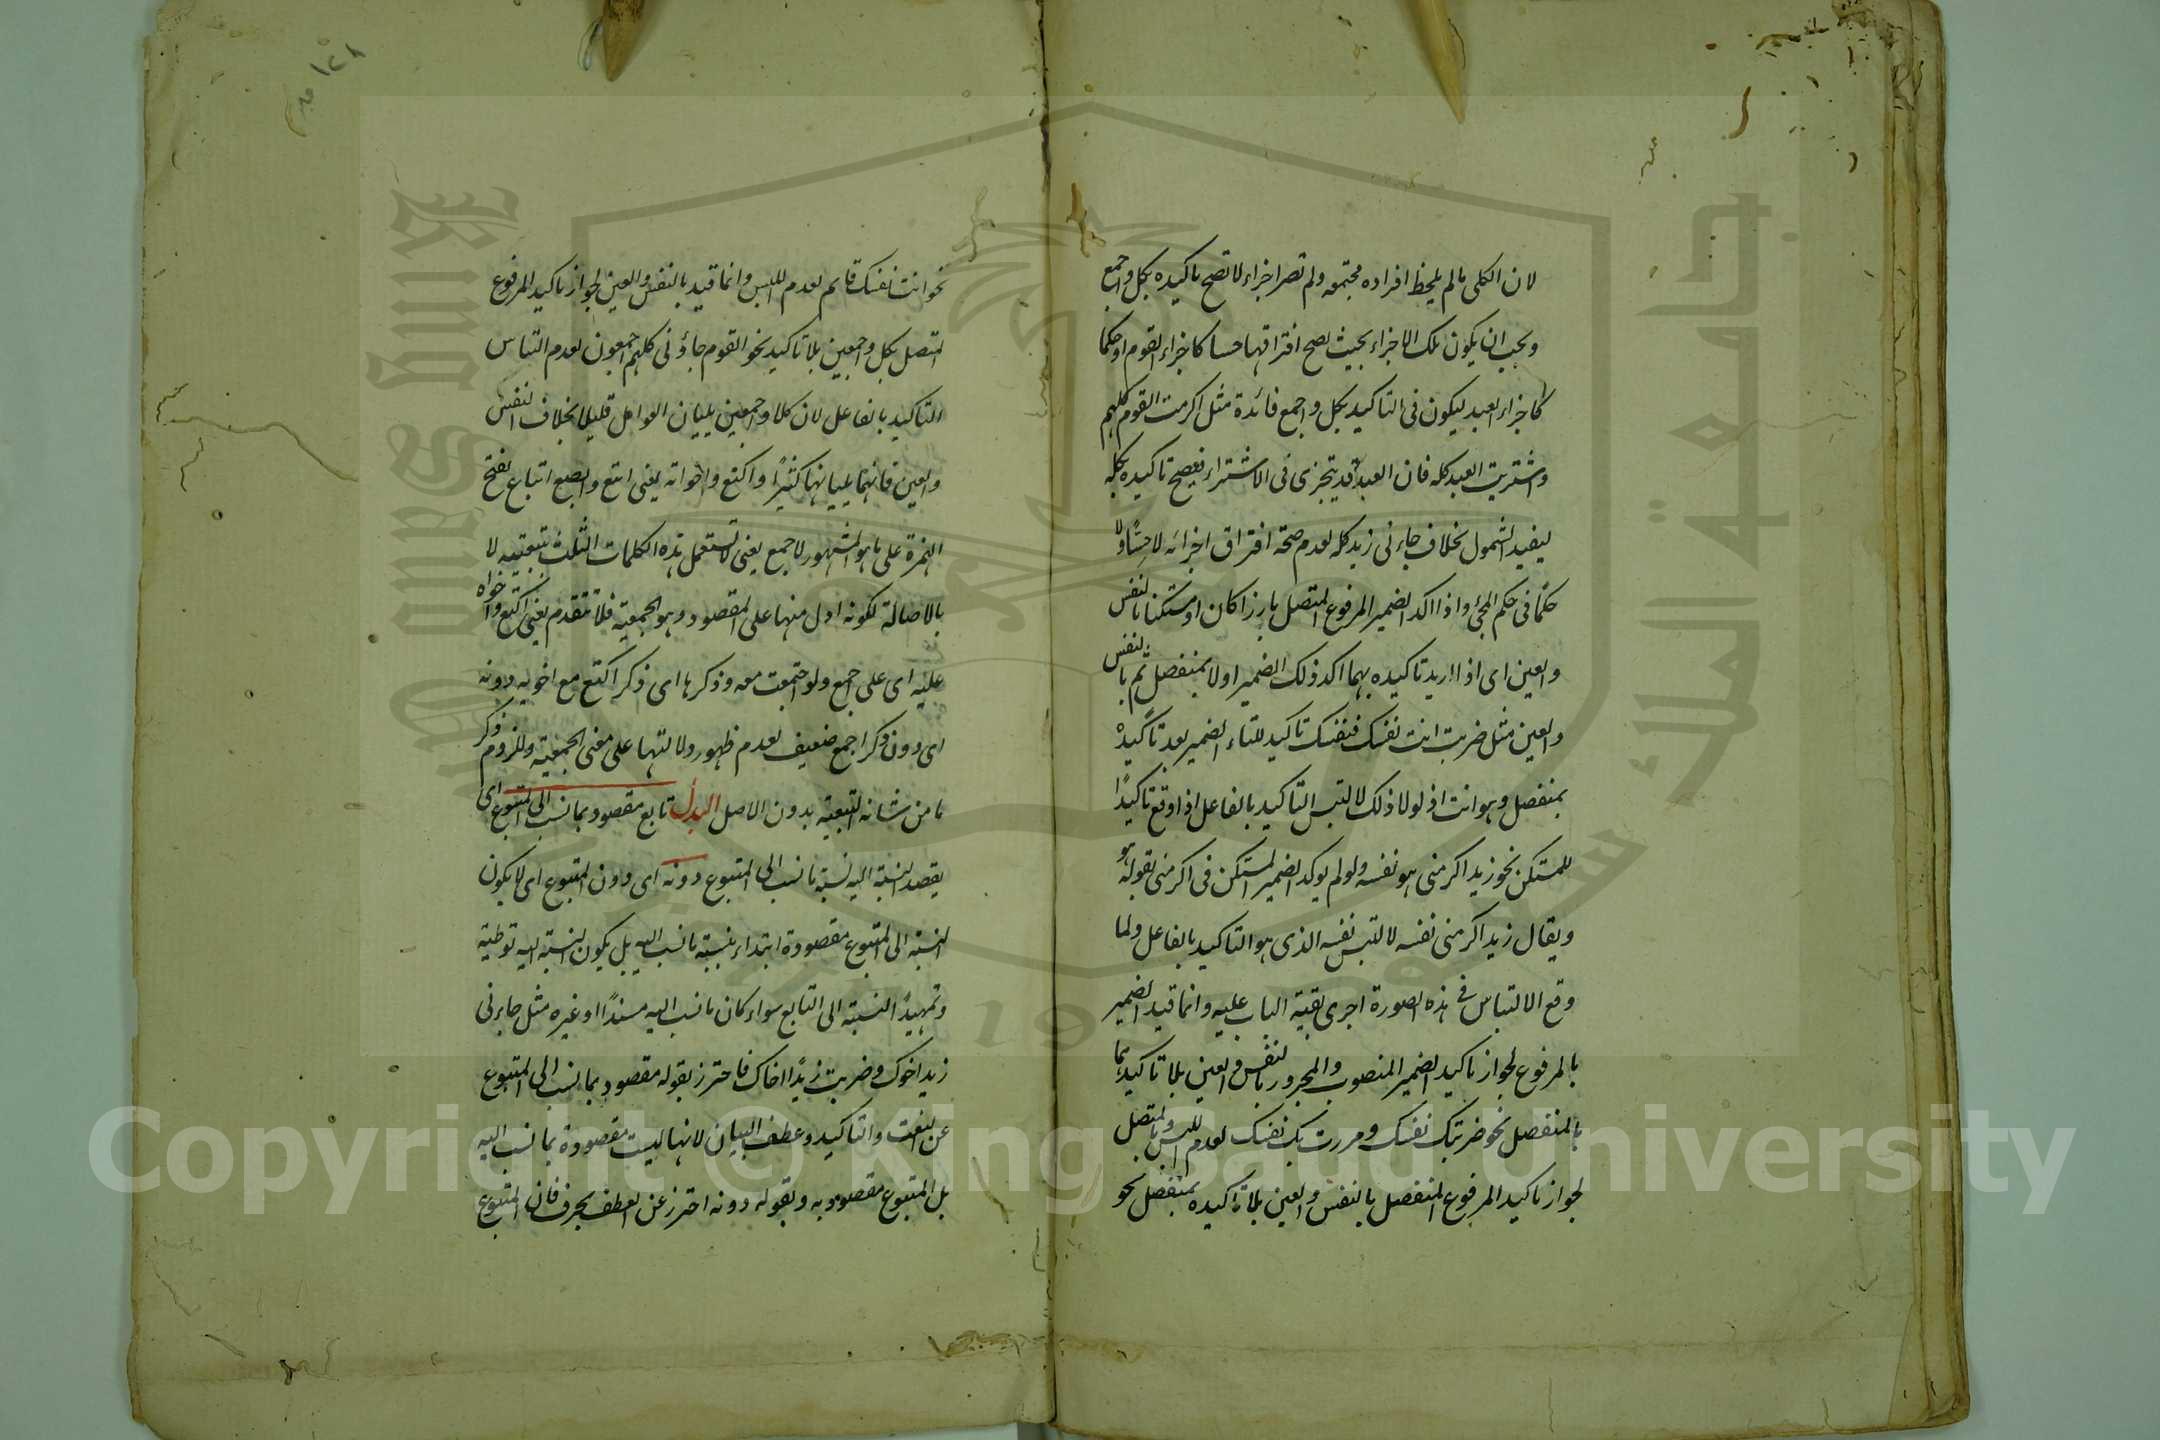 لان الكلى مالم يلحظ افراده مجتمعة ولم تصر اجزاء لا تصح تاكيده بكل واجمع
ويجب ان يكون تلك الاجزاء بحيث يصح افتراقها حسا كاجزاء القوم او حكما
كاجزاء العبد ليكون فى التاكيد بكل واجمع فائدة مثل اكرمت القوم كلهم
واشتريت العبد كله فان العبد قد يتجزى فى الاشتراء فيصح تاكيده بكله
ليفيد الشمول بخلاف جاءنى زيد كله لعدم صحة افتراق اجزائه لا حسًا ولا
حكمًا فى حكم المجئ واذا اكد الضمير المرفوع المتصل بارزا كان او مستكنا بالنفس
والعين اى اذا اريد تاكيده بهما اكد ذلك الضمير اولا بمنفصل ثم بالنفس
والعين مثل ضربت انت نفسك فنفسك تاكيد للتاء الضمير بعد تاكيده
بمنفصل وهو انت اذ لولا ذلك لالتبس التاكيد بالفاعل اذا وقع تاكيدًا
للمستكن نحو زيد اكرمنى هو نفسه ولو لم يوكد الضمير المستكن فى اكرمنى بقوله هو
ويقال زيد اكرمنى نفسه لالتبس نفسه الذى هو التاكيد بالفاعل ولما
وقع الالتباس فى هذه الصورة اجرى بقية الباب عليه وانما قيد الضمير
بالمرفوع لجواز تاكيد الضمير المنصوب والمجرور بالنفس والعين بلا تاكيدهما
بالمنفصل نحو ضربتك نفسك ومررت بك نفسك لعدم اللبس وبالمتصل
لجواز تاكيد المرفوع المنفصل بالنفس والعين بلا تاكيده بمنفصل نحو
نحو انت نفسك قائم لعدم اللبس وانما قيد بالنفس والعين لجواز تاكيد المرفوع
المتصل بكل واجمعين بلا تاكيد نحو القوم جاؤنى كلهم اجمعون لعدم التباس
التاكيد بالفاعل لان كلا واجمعين يليان العوامل قليلا بخلاف النفس
والعين فانهما يليانها كثيرًا واكتع واخواته يعنى ابتع وابصع اتباع بفتح
الهمزة على ما هو المشهور لاجمع يعنى لا تستعمل هذه الكلمات الثلث بتبعيته لا
بالاصالة لكونه ادل منها على المقصود وهو الجمعية فلا تتقدم يعنى اكتع واخواه
عليه اى على اجمع ولو اجتمعت معه وذكرها اى ذكر اكتع مع اخويه دونه
اى دون ذكر اجمع ضعيف لعدم ظهور دلالتها على معنى الجمعية وللزوم ذكر
ما من شانه التبعية بدون الاصل البدل تابع مقصود بما نسب الى المتبوع اى
يقصد النسبة اليه نسبة ما نسب الى المتبوع دونه اى دون المتبوع اى لا يكون
النسبة الى المتبوع مقصودة ابتداء بنسبة ما نسب اليه بل يكون النسبة اليه توطية
وتمهيدًا النسبة الى التابع سواء كان ما نسب اليه مسندًا او غيره مثل جاءنى
زيد اخوك وضربت زيدًا اخاك فاحترز بقوله مقصود بما نسب الى المتبوع
عن النعت والتاكيد وعطف البيان لانها ليست مقصودة بما نسب اليه
بل المتبوع مقصود به وبقوله دونه احترز عن العطف بحرف فان المتبوع
Copyright © King Saud University
جامعة الملك سعود
King Saud University